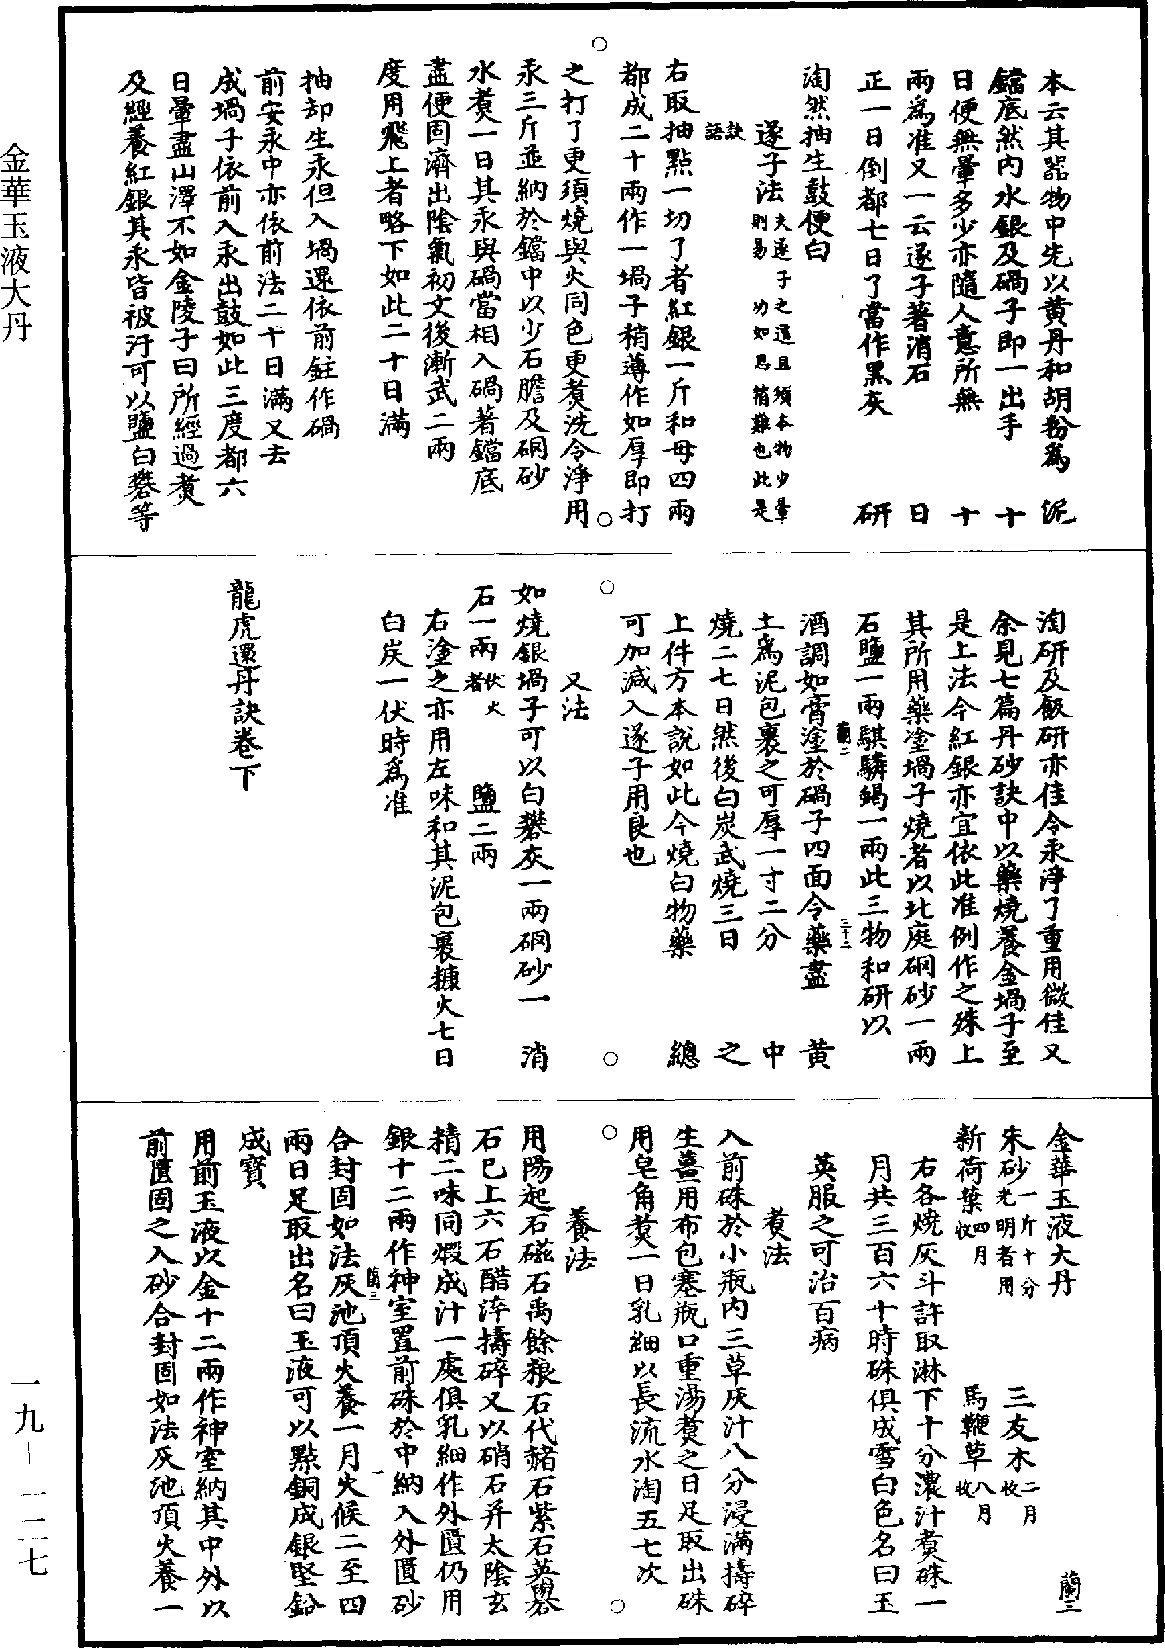 金華玉液大丹
一九—一二七
本云其器物中先以黄丹和胡粉為泥
鐺底然内水銀及碢子即一出手十
日便無暈多少亦隨人意所無十
兩為准又一云逐子著消石日
正一日倒都七日了當作黑灰研
淘然抽生鼓便白
逐子法夫逐子之道且須本物少暈則易功如思稍難也此是
訣語
右取抽點一切了者紅銀一斤和母四兩
都成二十兩作一堝子稍薄作如厚即打
之打了更須燒與火同色更煑洗令淨用
汞三斤並納於鐺中以少石膽及硇砂
水煑一日其汞與碢當相入碢著鐺底
盡便固濟出陰氣初文後漸武二兩
度用飛上者略下如此二十日滿
抽却生汞但入堝還依前鉒作碢
前安汞中亦依前法二十日滿又去
成堝子依前入汞出鼓如此三度都六
日暈盡山澤不如金陵子曰所經過煑
及經養紅銀其汞皆被汙可以鹽白礬等
淘研及飯研亦佳令汞淨了重用微佳又
余見七篇丹砂訣中以藥燒養金堝子至
是上法今紅銀亦宜依此准例作之殊上
其所用藥塗堝子燒者以北庭硇砂一兩
石鹽一兩騏驎竭一兩此三物和研以
酒調如膏塗於碢子四面令藥盡黄
蘭二
三十二
土為泥包裹之可厚一寸二分中
燒二七日然後白炭武燒三日之
上件方本說如此今燒白物藥總
可加減入逐子用良也
又法
如燒銀堝子可以白礬灰一兩硇砂一消
石一兩伏火者鹽二兩
右塗之亦用左味和其泥包裹糠火七日
白炭一伏時為准
龍虎還丹訣卷下
金華玉液大丹
蘭三
朱砂一斤十分光明者用三友木二月收
新荷葉四月收馬鞭草八月收
右各燒灰斗許取淋下十分濃汁煑硃一
月共三百六十時硃俱成雪白色名曰玉
英服之可治百病
煑法
入前硃於小瓶内三草灰汁八分浸滿擣碎
生薑用布包塞瓶口重湯煑之日足取出硃
用皂角煑一日乳細以長流水淘五七次
養法
用陽起石磁石禹餘粮石代赭石紫石英礜
石已上六石醋淬擣碎又以硝石并太陰玄
精二味同煆成汁一處俱乳細作外匱仍用
銀十二兩作神室置前硃於中納入外匱砂
合封固如法灰池頂火養一月火候二至四
蘭三
兩日足取出名曰玉液可以點銅成銀堅鉛
成寳
用前玉液以金十二兩作神室納其中外以
前匱固之入砂合封固如法灰池頂火養一